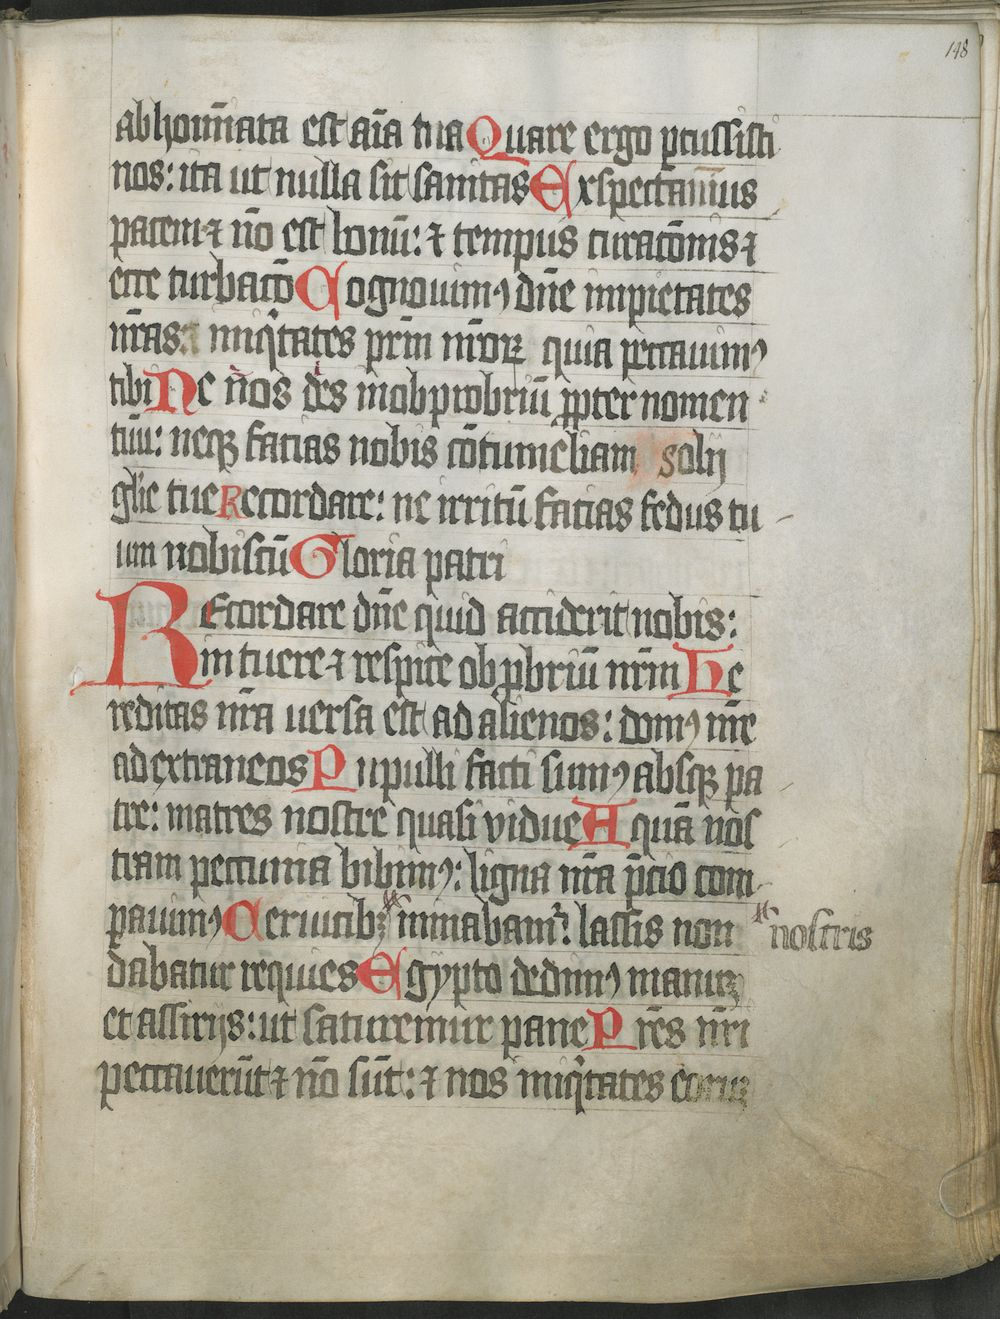 148
abhoīnata est aīa tua Quare ergo ꝑcussisti
nos: ita ut nulla sit sanitas Exspectauimus
pacem ⁊ nō est bonū: ⁊ tempus curacōnis ⁊
ecce turbacō Cognouimꝰ dn̄e impietates
nr̄as iniqͥtates pr̄m nr̄oꝝ quia peccauimꝰ
tibi Ne nos des inobprobriū ꝓpter nomen
tuū: neqꝫ facias nobis cōtumeliam solij
glīe tue Recordare: ne irritū facias fedus tu
um nobiscū Gloria patri
REcordare dn̄e quid acciderit nobis:
intuere ⁊ respice obꝓbriū nr̄m He
reditas nr̄a uersa est ad alienos: domꝰ nr̄e
ad extraneos Pupulli facti sumꝰ absqꝫ pa
tre: matres nostre quasi vidue Aquā nos
tram peccunia bibimꝰ: ligna nr̄a p̄cio com
pauimꝰ Ceruicibꝫ minabamͬ: lassis non nostris
dabatur requies Egypto dedimꝰ manuꝫ
et assirijs: ut saturemur pane Pr̄es nr̄i
peccauerūt ⁊ nō sūt: ⁊ nos iniqͥtates eoruꝫ